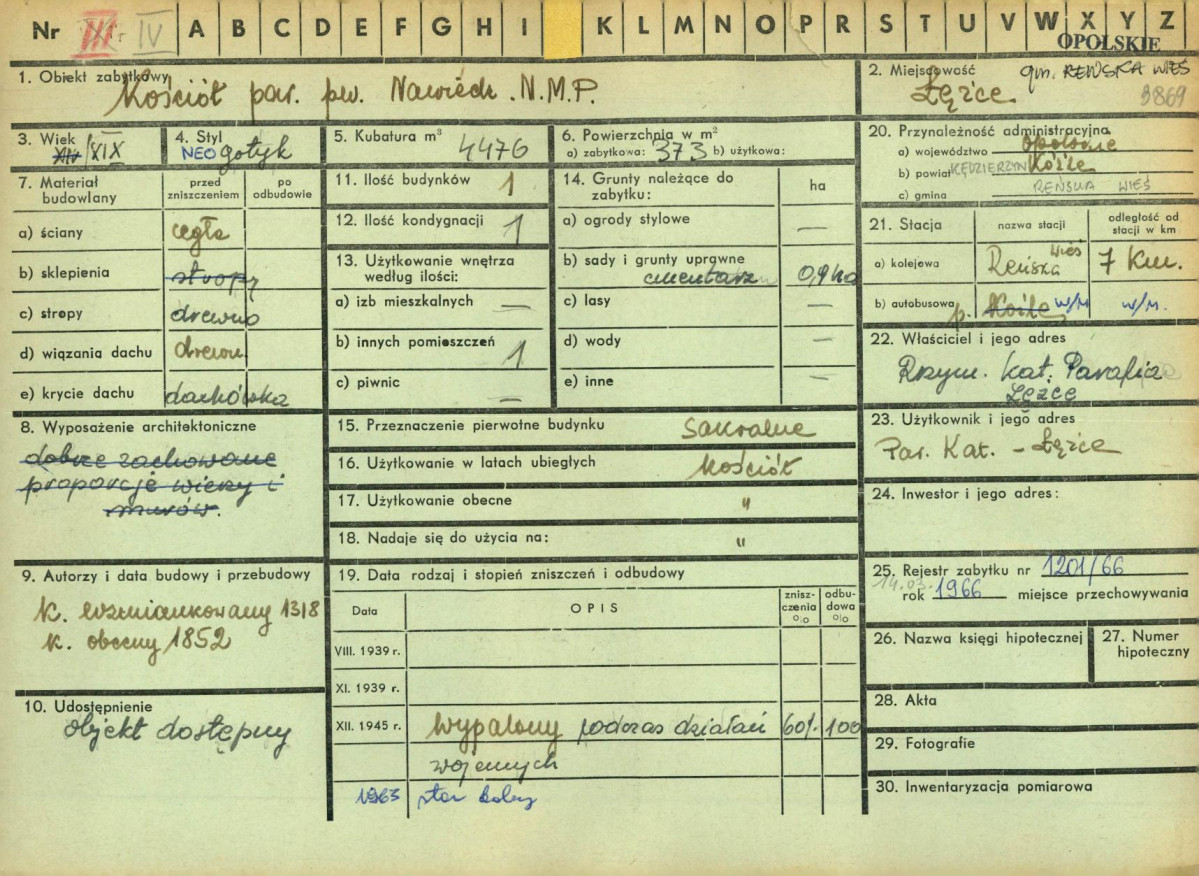 Nr III IV A B C D E F G H I K L M N O P R S T U V W X Y Z
OPOLSKIE
1. Obiekt zabytkowy
Kościół par. pw. Nawiedz. N.M.P.
2. Miejscowość gm. REŃSKA WIEŚ
Łężce 3869
3. Wiek
XIV/XIX
4. Styl
NEO gotyk
5. Kubatura m³
4476
6. Powierzchnia w m²
a) zabytkowa: 373 b) użytkowa:
20. Przynależność administracyjna
a) województwo Opolskie
b) powiat KĘDZIERZYN Koźle
c) gmina REŃSKA WIEŚ
7. Materiał budowlany
przed zniszczeniem
po odbudowie
a) ściany cegła
b) sklepienia stropy
c) stropy drewno
d) wiązania dachu drewn.
e) krycie dachu dachówka
11. Ilość budynków 1
12. Ilość kondygnacji 1
13. Użytkowanie wnętrza według ilości:
a) izb mieszkalnych —
b) innych pomieszczeń 1
c) piwnic —
14. Grunty należące do zabytku:
ha
a) ogrody stylowe —
b) sady i grunty uprawne
cmentarz 0,9 ha
c) lasy —
d) wody —
e) inne —
21. Stacja
nazwa stacji
odległość od stacji w km
a) kolejowa Reńska Wieś 7 km.
b) autobusowa p. Koźle w/m w/m.
22. Właściciel i jego adres
Rzym. kat. Parafia
Łężce
8. Wyposażenie architektoniczne
dobrze zachowane
proporcje wieży i
murów.
15. Przeznaczenie pierwotne budynku sakralne
16. Użytkowanie w latach ubiegłych kościół
17. Użytkowanie obecne "
18. Nadaje się do użycia na: "
23. Użytkownik i jego adres
Par. Kat. - Łężce
24. Inwestor i jego adres:
9. Autorzy i data budowy i przebudowy
k. wzmiankowany 1318
k. obecny 1852
10. Udostępnienie
objekt dostępny
19. Data rodzaj i stopień zniszczeń i odbudowy
Data
OPIS
zniszczenia %
odbudowa %
VIII. 1939 r.
XI. 1939 r.
XII. 1945 r. wypalony podczas działań 60% 100
wojennych
1963 stan dobry
25. Rejestr zabytku nr 1201/66
14.03.
rok 1966 miejsce przechowywania
26. Nazwa księgi hipotecznej
27. Numer hipoteczny
28. Akta
29. Fotografie
30. Inwentaryzacja pomiarowa